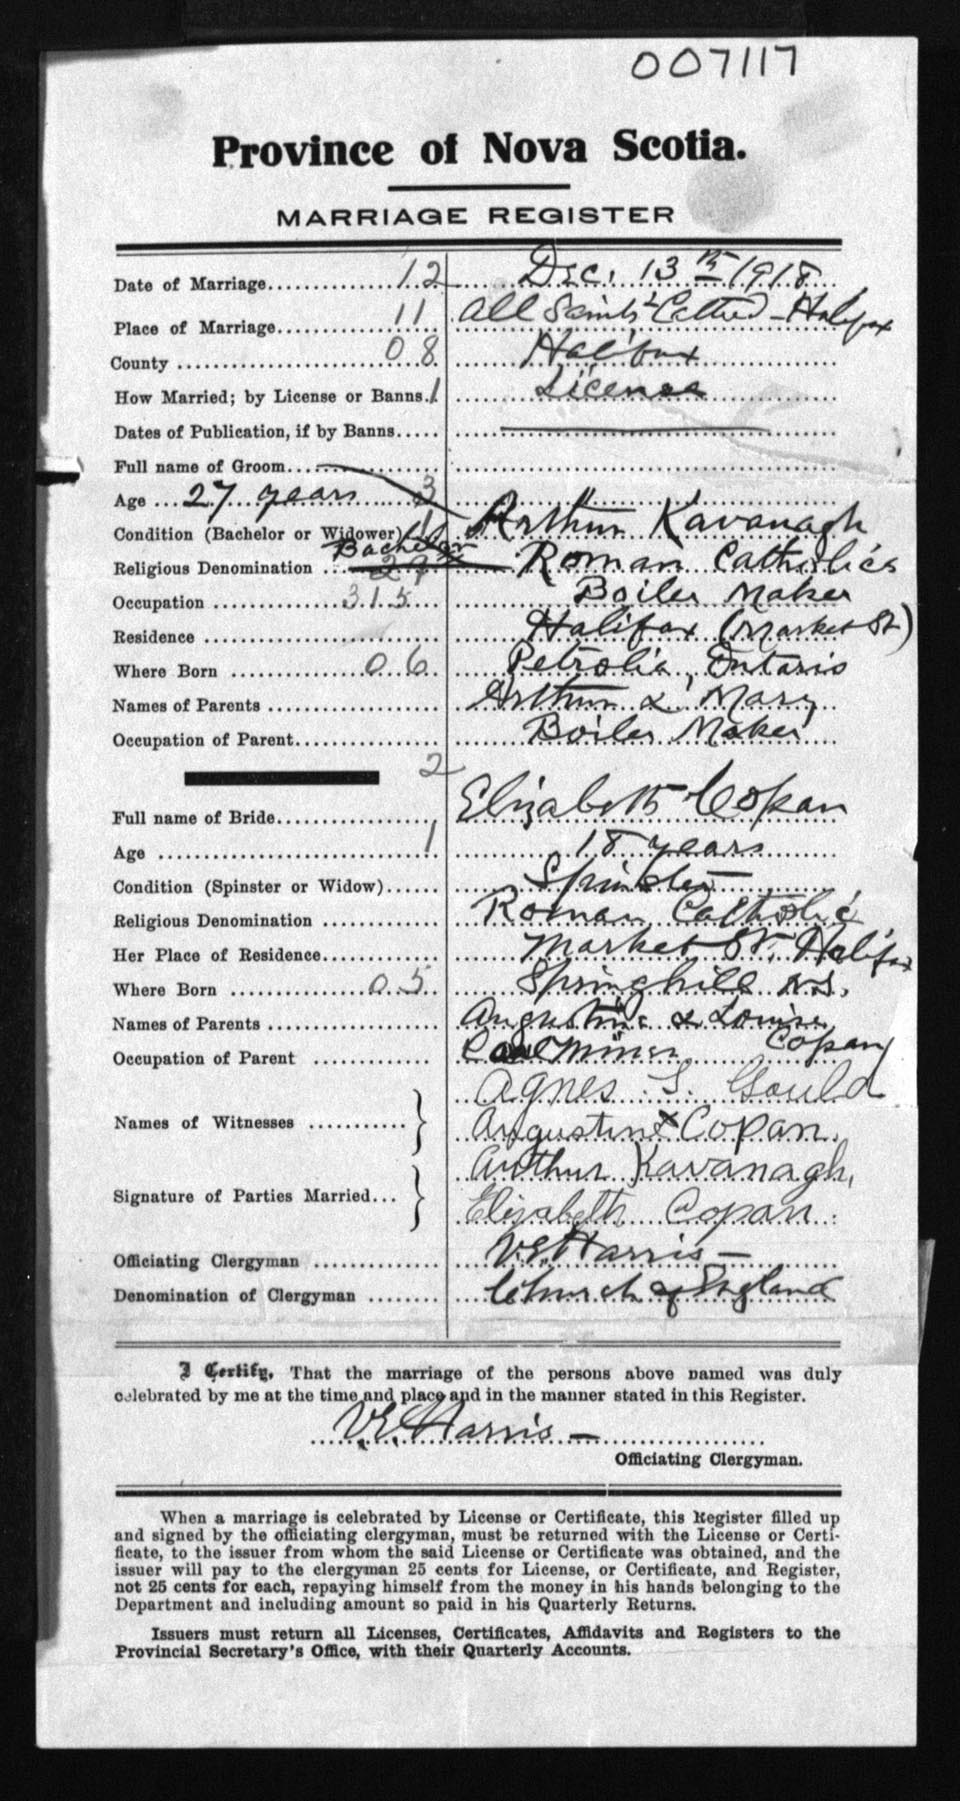 007117
Province of Nova Scotia.
MARRIAGE REGISTER
Date of Marriage 12 Dec. 13th 1918
Place of Marriage 11 All Saints Cathed - Halifax
County 08 Halifax
How Married; by License or Banns. 1 License
Dates of Publication, if by Banns
Full name of Groom
Age 27 years 3
Condition (Bachelor or Widower) 1 Arthur Kavanagh
Bachelor
Religious Denomination Roman Catholic
Occupation 315 Boiler Maker
Residence Halifax (Market St)
Where Born 06 Petrolia, Ontario
Names of Parents Arthur & Mary
Occupation of Parent Boiler Maker
2
Full name of Bride Elizabeth Copan
Age 1 18 years
Condition (Spinster or Widow) Spinster
Religious Denomination Roman Catholic
Her Place of Residence Market St. Halifax
Where Born 05 Springhill N.S.
Names of Parents Augustine & Louise Copan
Occupation of Parent Coal Miner
Agnes S. Gould
Names of Witnesses
Augustine Copan.
Arthur Kavanagh,
Signature of Parties Married
Elizabeth Copan.
Officiating Clergyman V.E. Harris
Denomination of Clergyman Church of England
I Certify, That the marriage of the persons above named was duly
celebrated by me at the time and place and in the manner stated in this Register.
V.E. Harris
Officiating Clergyman.
When a marriage is celebrated by License or Certificate, this Register filled up
and signed by the officiating clergyman, must be returned with the License or Certi-
ficate, to the issuer from whom the said License or Certificate was obtained, and the
issuer will pay to the clergyman 25 cents for License, or Certificate, and Register,
not 25 cents for each, repaying himself from the money in his hands belonging to the
Department and including amount so paid in his Quarterly Returns.
Issuers must return all Licenses, Certificates, Affidavits and Registers to the
Provincial Secretary's Office, with their Quarterly Accounts.